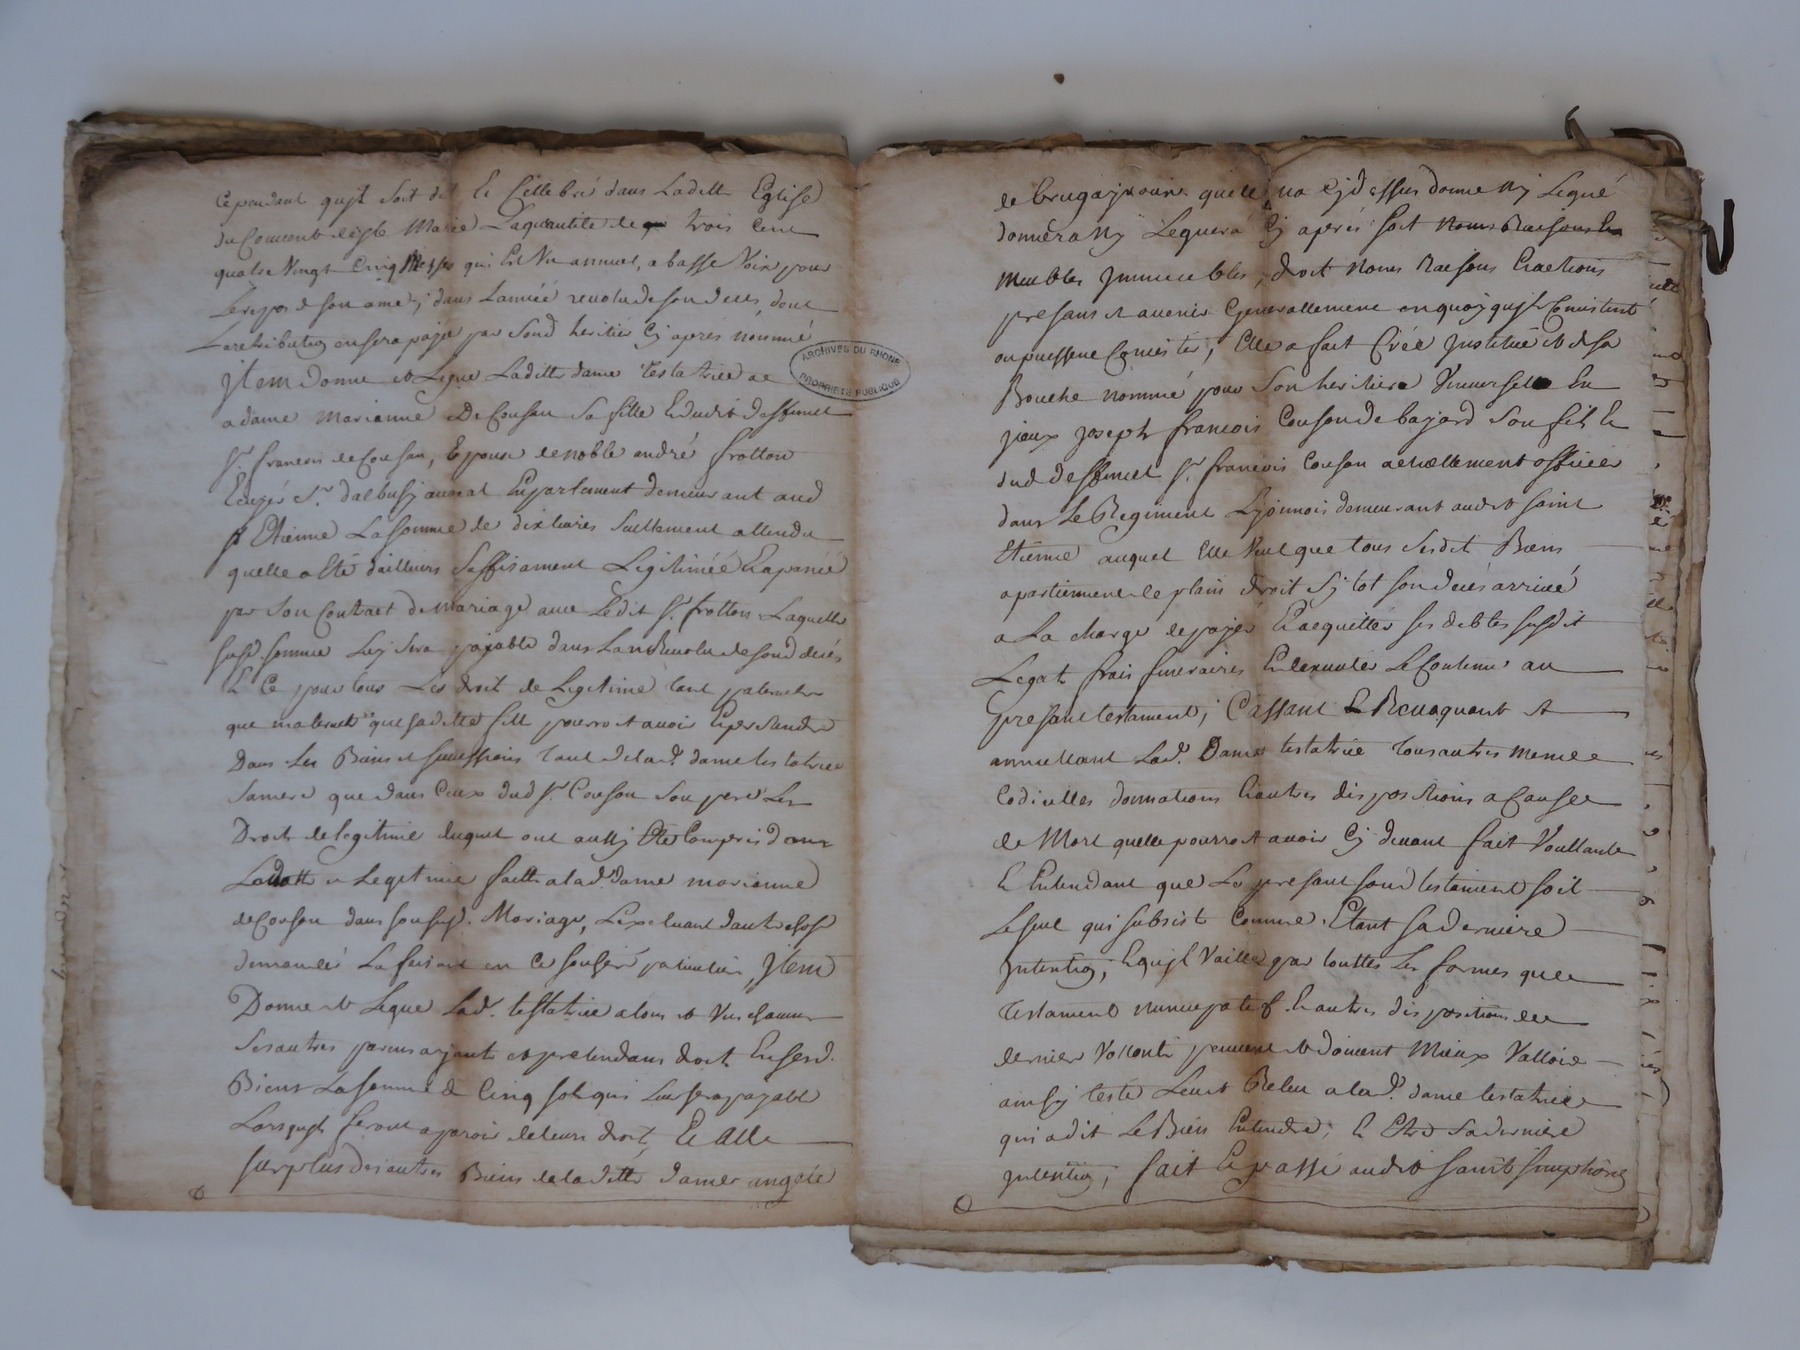 Cependant qujl soit dit Et Cellebré dans Laditte Eglise
du Couvent de ste Marie Laquantité de trois Cent
quatre Vingt Cinq Messes qui Est Vn annuel, a basse Voix pour
Lerepos de son ame, dans Lannéé revolu de son deces, dont
Laretribution en sera payé par sond heritier Cy aprés nommé
ARCHIVES DU RHONE
PROPRIETE PUBLIQUE
jtem donne et Legue Laditte dame testatrice a
adame Marianne De Couson sa fille Et dudit deffunct
Sr. francois de Couson, Epouse de noble andré frotton
Ecuyer Sr. dalbusy avocat En parlement demeurant aud
St Etienne La somme de dix livres Seullement attendu
quelle a Eté dailleurs Suffisament Legitiméé Et apanéé
par Son Contract de Mariage avec Ledit Sr. frotton Laquelle
susd. somme Luy sera payable dans Lan Revolu de sond decés
Et Ce pour tous Les droit de Legitime tant paternelle
que maternelle que saditte fille pourroit avoir Et pretendre
Dans Les Biens et successions tant de lad. dame testatrice
Samere que dans Ceux dud Sr. Couson Son pere Les
Droit de legitime duquel ont aussy Eté Compris dans
Ladotte et Legitime faitte alad dame marianne
de Couson dans son susd. Mariage, Lexcluant dautre chose
demander La faisant en Ce son heritiere particuliere, Jtem
Donne et Legue Lad. testatrice atous et Vn chacuns
Ses autres parens ayants et pretendans droit En sesd.
Biens La somme de Cinq sols qui Leur sera payable
Lorsqujls feront aparoir de leurs droit, Et Au
surplus des autres Biens de laditte dame angele
de brugaj pouine quelle na Cy dessus donné Ny Legué
donnera Ny Leguera Cy aprés soit
Meubles jmmeubles, droit Noms Raisons Et actions
presans et avenir Generallement en quoy qujls Consistent
ou puissent Consister, Elle a fait Créé jnstitué et de sa
Bouche nommé pour Son heritier Vniversel En
jceux joseph francois Couson de bayard Son fils Et
dud deffunct Sr. francois Couson actuellement officier
dans Le Regiment Lyonnois demeurant audit saint
Etienne auquel Elle Veut que tous Sesdit Biens
apartiennent de plain droit Sy tot son decés arrivé
a La charge de payer Et acquitter ses debtes susdit
Legats frais funeraires Et dexecuter Le Contenu au
presant testament; Cassant Et Revoquant Et
annullant Lad. Dame testatrice tous autres Memes
Codicilles donnations Et autres dispositions a Cause
de Mort quelle pourroit avoir Cy devant fait Voullant
Et Entendant que Le presant sond testament soit
Le seul qui subsiste Comme Etant sa derniere
jntention; Et qujl Vaille par touttes Les formes que
testament nuncupatif Et autres dispositions de
dernier Vollonté peuvent et doivent Mieux Valloir
ainsy testé Leu et Releu a lad. dame testatrice
qui adit Le Bien Entendre, Et Etre sa derniere
jntention; fait Et passé audit saint simphorien